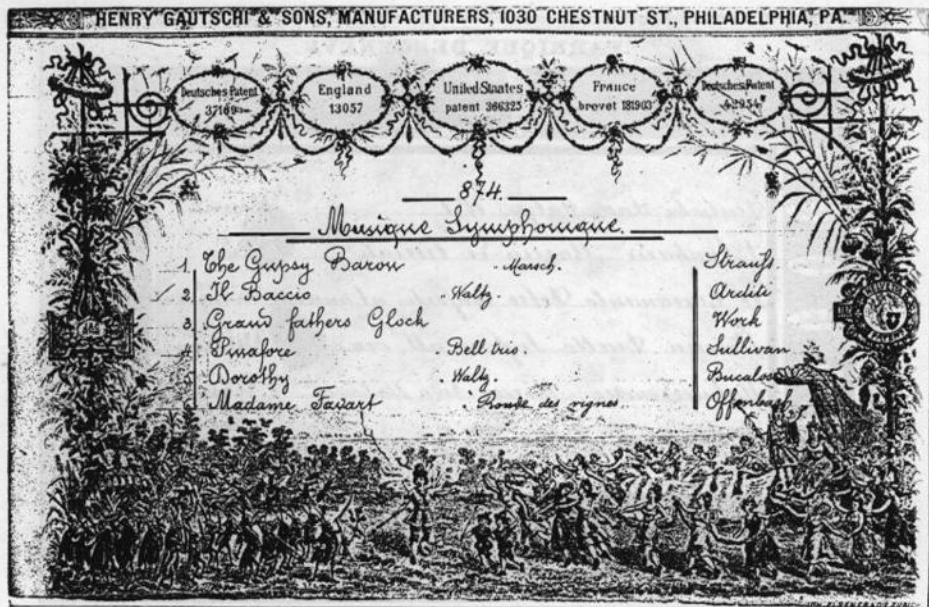 HENRY GAUTSCHI & SONS, MANUFACTURERS, 1030 CHESTNUT ST., PHILADELPHIA, PA.
Deutsches Patent 37189
England 13057
United Staates patent 366325
France brevet 181903
Deutsches Patent 42934
874.
Musique Symphonique.
1. The Gypsy Baron Marsch. Strauss
2. Il Baccio Waltz Arditi
3. Grand fathers Glock Work
4. Pinafore Bell trio Sullivan
5. Dorothy Waltz. Bucalossi
6. Madame Favart Ronde des vignes. Offenbach